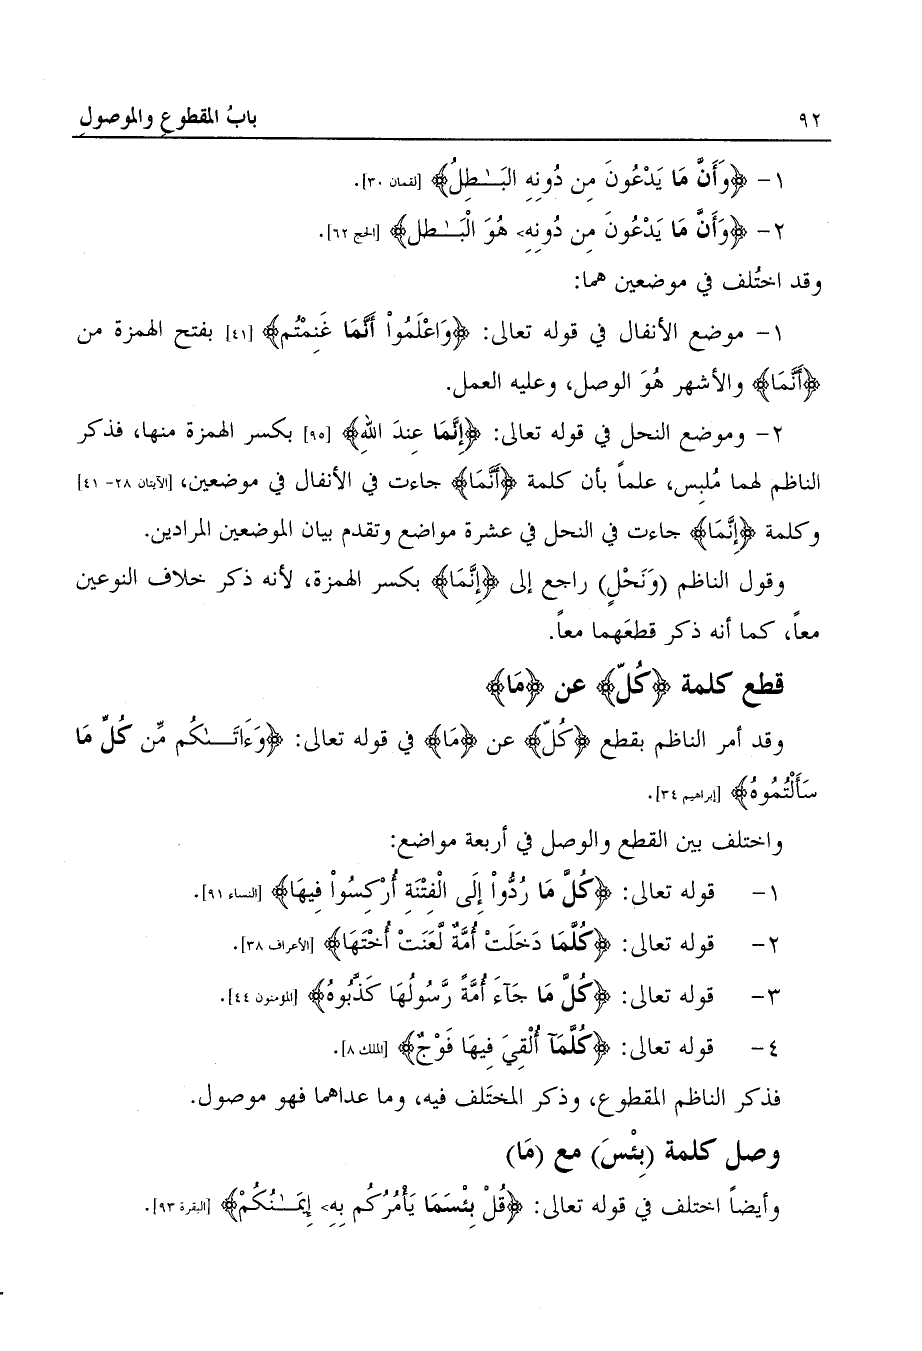 ٩٢ بابُ المقطوعِ والموصولِ
١- ﴿وَأَنَّ مَا يَدْعُونَ مِن دُونِهِ البَـٰطِلُ﴾ [لقمان ٣٠].
٢- ﴿وَأَنَّ مَا يَدْعُونَ مِن دُونِهِۦ هُوَ الْبَـٰطِلُ﴾ [الحج ٦٢].
وقد اختُلف في موضعين هما:
١- موضع الأنفال في قوله تعالى: ﴿وَاعْلَمُواْ أَنَّمَا غَنِمْتُم﴾ [٤١] بفتح الهمزة من
﴿أَنَّمَا﴾ والأشهر هُوَ الوصل، وعليه العمل.
٢- وموضع النحل في قوله تعالى: ﴿إِنَّمَا عِندَ اللهِ﴾ [٩٥] بكسر الهمزة منها، فذكر
الناظم لهما مُلبِس، علماً بأن كلمة ﴿أَنَّمَا﴾ جاءت في الأنفال في موضعين، [الآيتان ٢٨- ٤١]
وكلمة ﴿إِنَّمَا﴾ جاءت في النحل في عشرة مواضع وتقدم بيان الموضعين المرادين.
وقول الناظم (وَنَحْلٍ) راجع إلى ﴿إِنَّمَا﴾ بكسر الهمزة، لأنه ذكر خلاف النوعين
معاً، كما أنه ذكر قطعَهما معاً.
قطع كلمة ﴿كُلّ﴾ عن ﴿مَا﴾
وقد أمر الناظم بقطع ﴿كُلّ﴾ عن ﴿مَا﴾ في قوله تعالى: ﴿وَءَاتَـٰكُم مِّن كُلِّ مَا
سَأَلْتُمُوهُ﴾ [إبراهيم ٣٤].
واختلف بين القطع والوصل في أربعة مواضع:
١- قوله تعالى: ﴿كُلَّ مَا رُدُّواْ إِلَى الْفِتْنَةِ أُرْكِسُواْ فِيهَا﴾ [النساء ٩١].
٢- قوله تعالى: ﴿كُلَّمَا دَخَلَتْ أُمَّةٌ لَّعَنَتْ أُخْتَهَا﴾ [الأعراف ٣٨].
٣- قوله تعالى: ﴿كُلَّ مَا جَآءَ أُمَّةً رَّسُولُهَا كَذَّبُوهُ﴾ [المؤمنون ٤٤].
٤- قوله تعالى: ﴿كُلَّمَآ أُلْقِيَ فِيهَا فَوْجٌ﴾ [الملك ٨].
فذكر الناظم المقطوع، وذكر المختَلف فيه، وما عداهما فهو موصول.
وصل كلمة (بِئْسَ) مع (مَا)
وأيضاً اختلف في قوله تعالى: ﴿قُلْ بِئْسَمَا يَأْمُرُكُم بِهِۦ إِيمَـٰنُكُمْ﴾ [البقرة ٩٣].